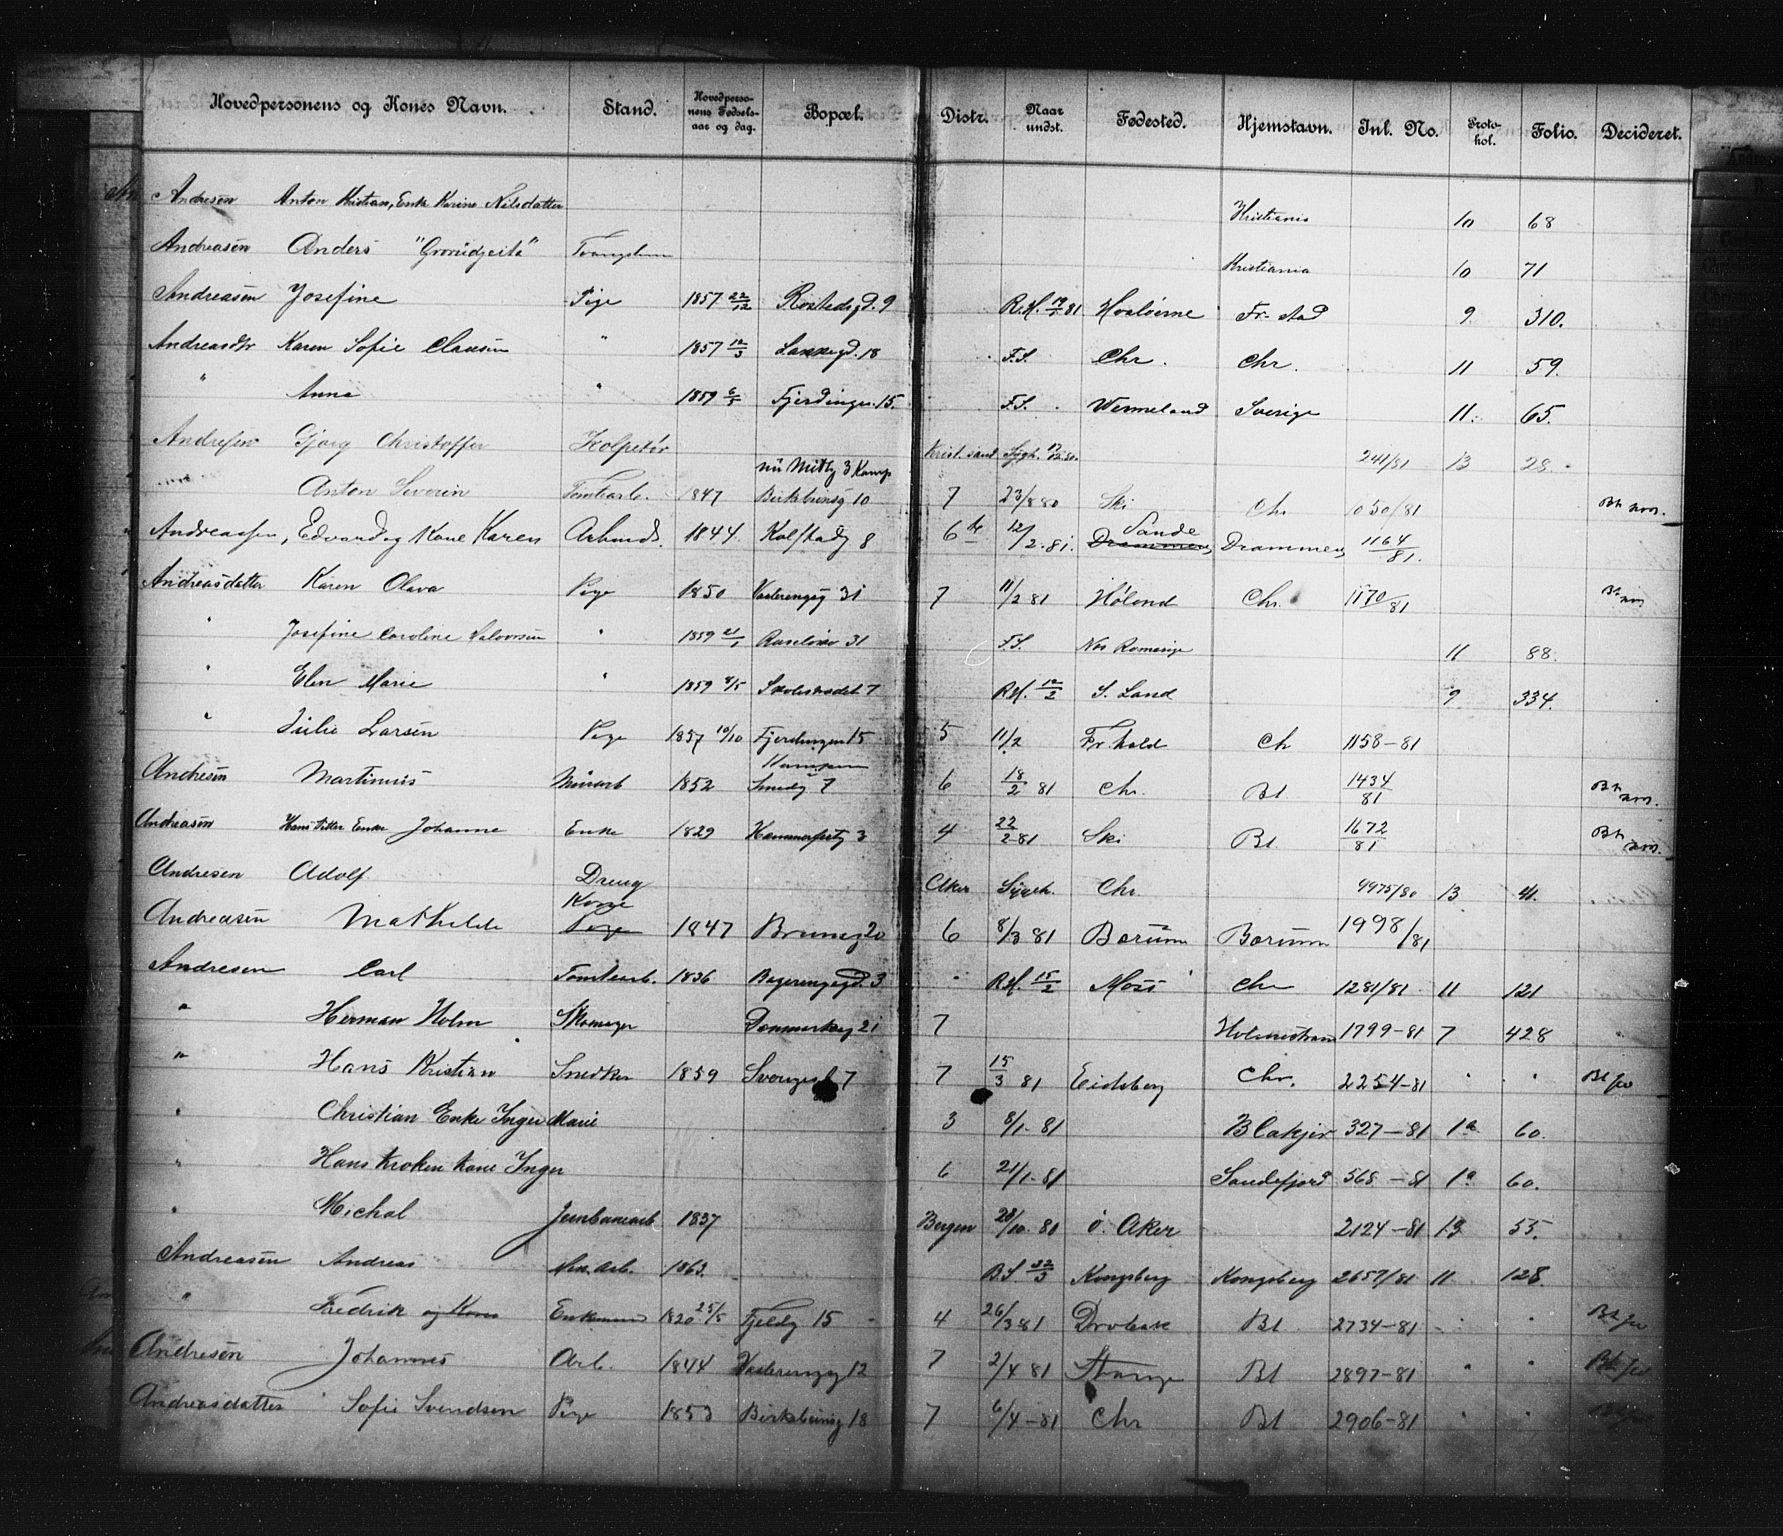 Hovedpersonens og Kones Navn. Stand. Hovedpersonens Fødselsaar og dag. Bopæl. Distr. Naar undst. Fødested. Hjemstavn. Inl. No. Protokol. Folio. Decideret.
Andresen Anton Kristian, Enke Karine Nilsdatter Kristiania 10 68
Andreasen Anders Kristiania 10 71
Andreasen Josefine Pige 1857 22/12 Rostedsgd. 9 R.H. 81 Hvaløerne Fr-stad 9 310.
Andreasdtr Karen Sofie Clausen " 1857 12/3 Lakkegd. 18 F.S. Chr. Chr. 11 59.
" Anna " 1859 6/5 Fjerdingen 15. F.S. Wermeland Sverige 11 65.
Andresen Gjørg Christoffer Kolpetør Krist.sand Sygh. 241/81 13 28
nu 3 Kamp
" Anton Severin Tomtearb. 1847 Birkebeinsg 10 7 23/8 80 Ski Chr 1050/81 Bh
Andreassen, Edvard og Kone Karen Arbmd. 1844 Kolstadg 8 6te 12/2. 81. Drammen Sande Drammen 1164/81.
Andreasdatter Karen Olava Pige 1850 Vaalerengsg 31 7 11/2 81 Høland Chr. 1170/81 Bh
" Josefine Caroline Halvorsen " 1859 21/1 31 F.S. Nes Romerige 11 88.
" Elen Marie " 1859 8/5 7 R.H. 12/2 S. Land 9 334.
" Julie Larsen Pige 1857 10/10 Fjerdingen 15 5 11/2 Fr.hald Ch 1158-81
Andresen Martinius Murarb 1852 Kampen Smedg 7 6 18/2 81 Chr. Bl 1434/81 Bh
Andreasen Hans Petter Enke Johanne Enke 1829 Hammerfestg 3 4 22/2 81 Ski Bl 1672/81 Bh
Andresen Adolf Dreng Aker Sygeh. Chr. 9975/80 13 41.
Andreasen Mathilde Kone Pige 1847 Brunsg 20 6 8/3 81 Bærum Bærum 1998/81
Andresen Carl Tomtearb. 1836 3 " R.H. 15/2 Moss Chr 1281/81 11 121
" Herman Holm Skomager Danmarksg 21 7 Holmestrand 1799-81 7 428
" Hans Kristian Snedker 1859 Sverigesg 7 7 15/3 81 Eidsberg Chr. 2254-81 " " Bl
" Christian Enke Inger Marie 3 8/1-81 Blakjer 327-81 1a 60.
" Hans Kroken Kone Inger 6 21/1-81 Sandefjord 568-81 1a 60.
" Michal Jernbanearb 1837 Bergen 28/10 80 Ø. Aker 2124-81 13 55.
Andreasen Andreas arb. 1863 B.S 22/3 Kongsberg Kongsberg 2657/81 11 128
" Fredrik og Kone Enkemand 1820 25/5 Fjeldg 15 4 26/3 81 Drøbak Bl 2734-81 " " Bh
Andresen Johannes Arb. 1844 Vaalerengsg 12 7 2/4 81 Stange Bl 2897-81 " " Bh
Andreasdatter Sofie Svendsen Pige 1853 Birkebeinsg 18 7 6/4-81 Chr Bl 2906-81 " "